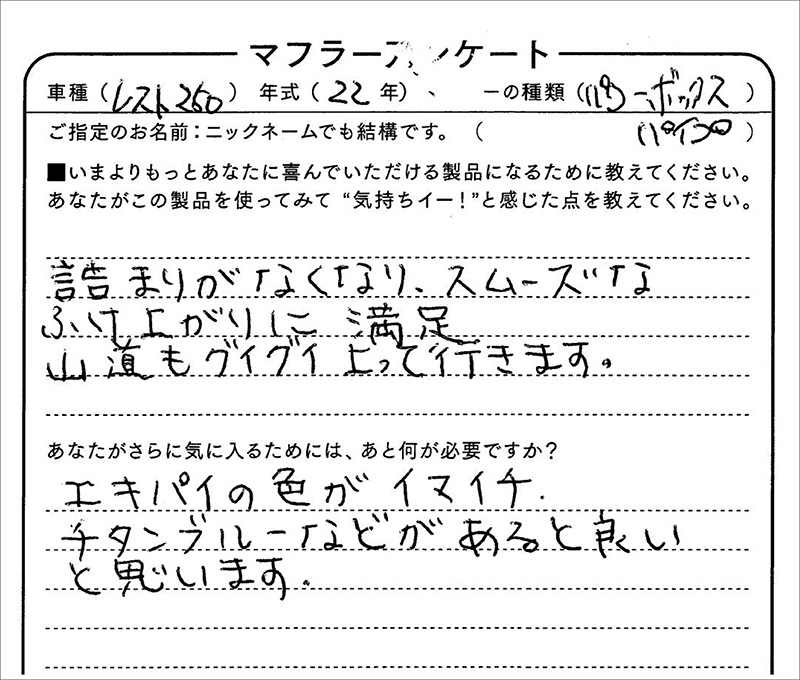 マフラーアンケート
車種（レスト250） 年式（22年） ーの種類（パワーボックス
パイプ）
ご指定のお名前：ニックネームでも結構です。（ ）
■いまよりもっとあなたに喜んでいただける製品になるために教えてください。
あなたがこの製品を使ってみて“気持ちイー！”と感じた点を教えてください。
詰まりがなくなり、スムーズな
ふけ上がりに満足
山道もグイグイ上って行きます。
あなたがさらに気に入るためには、あと何が必要ですか？
エキパイの色がイマイチ.
チタンブルーなどがあると良い
と思います.